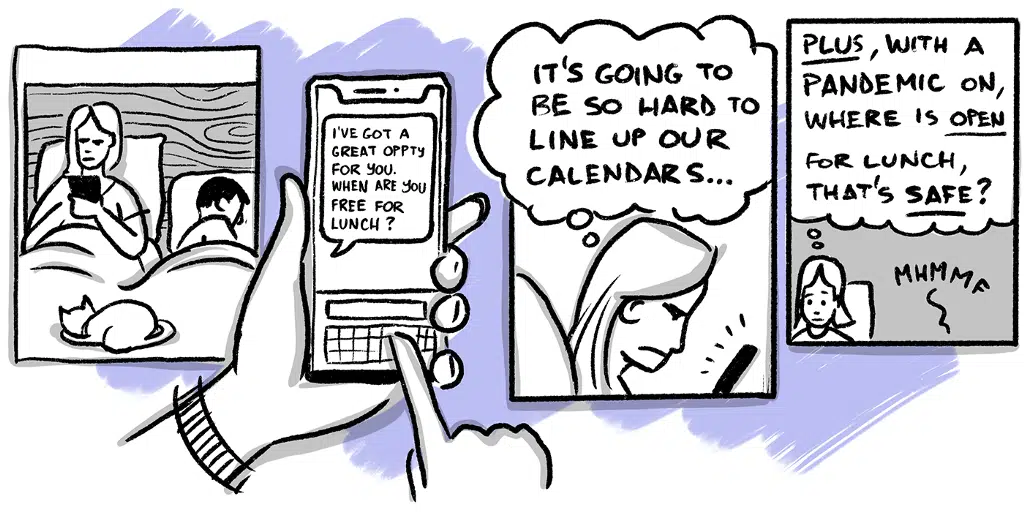 I'VE GOT A
GREAT OPPTY
FOR YOU.
WHEN ARE YOU
FREE FOR
LUNCH?
IT'S GOING TO
BE SO HARD TO
LINE UP OUR
CALENDARS...
PLUS, WITH A
PANDEMIC ON,
WHERE IS OPEN
FOR LUNCH,
THAT'S SAFE?
MHMMF